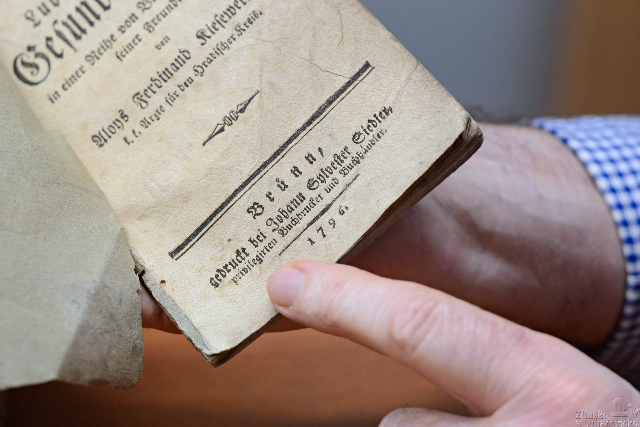 Gesund
in einer Reihe von
seiner Freund
von
Aloys Ferdinand Kiesewet
k. k. Arzte für den Hradischer Kreis.
Brünn,
gedruckt bei Johann Sylvester Siedler,
privilegirten Buchdrucker und Buchhändler.
1796.